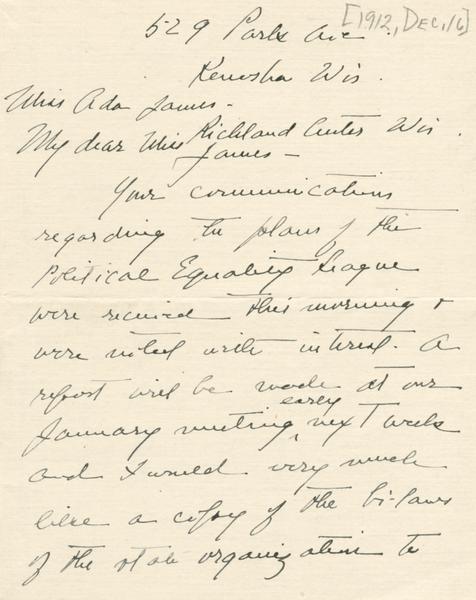 [1912, Dec. 16]
529 Park Ave.
Kenosha Wis.
Miss Ada James -
Richland Center Wis.
My dear Miss James -
Your communications
regarding the plans of the
Political Equality League
were received this morning &
were noted with interest. A
report will be made at our
January meeting early next week
and I would very much
like a copy of the bi-laws
of the state organization to